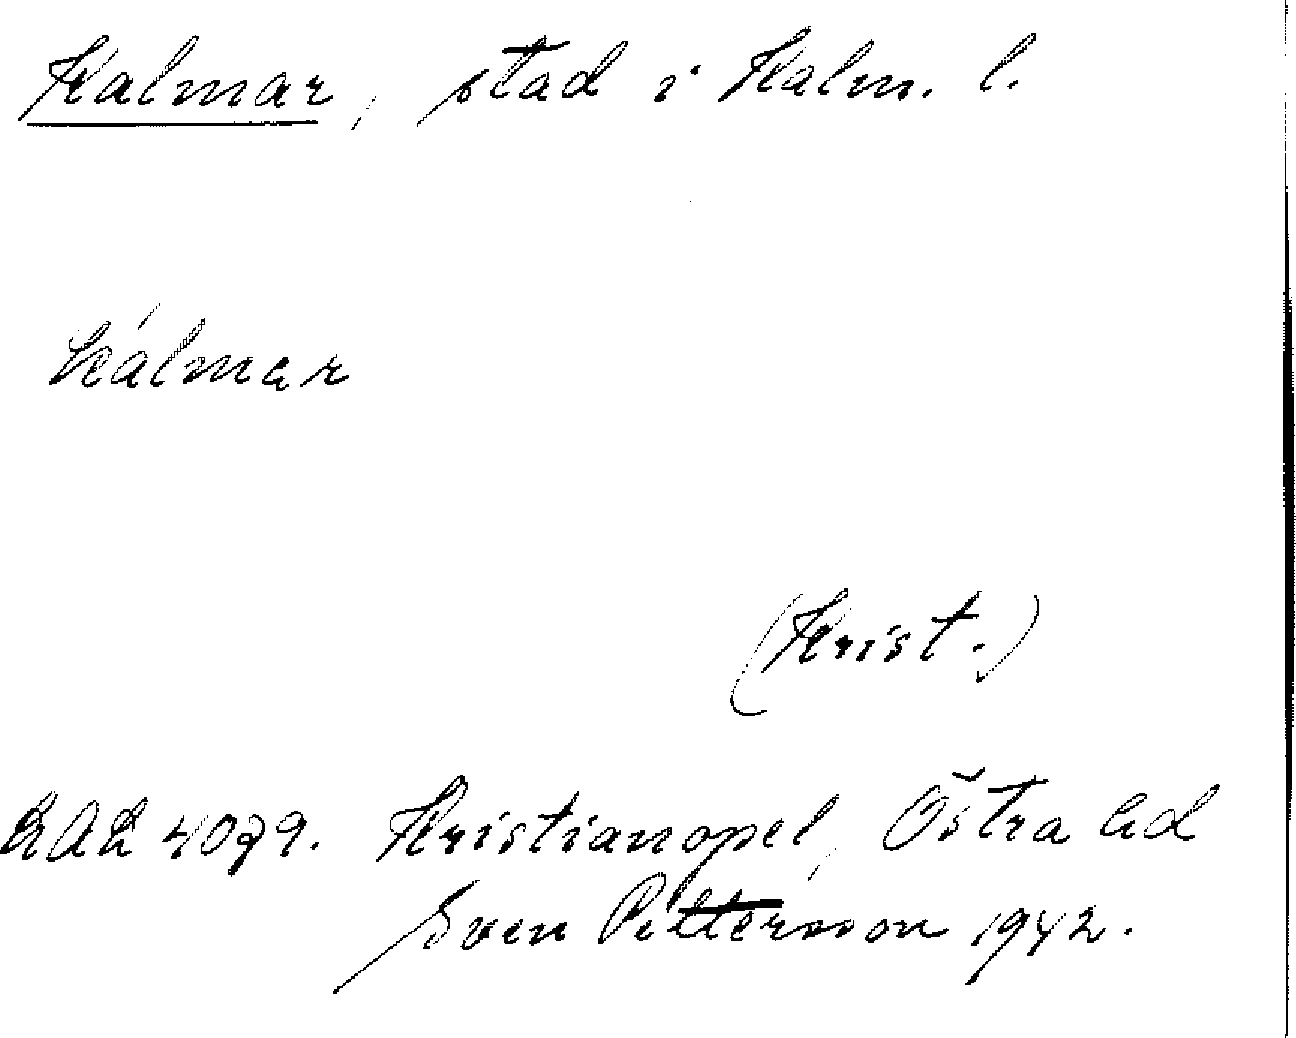 Kalmar, stad i Kalm. l.
kálmar
(Krist.)
4079. Kristianopel, Östra hd
Sven Pettersson 1942.